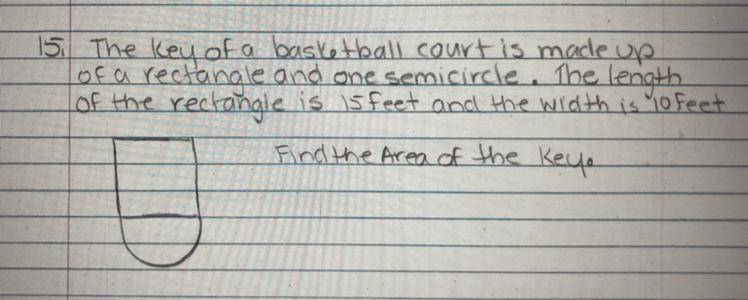 15. The key of a basketball court is made up
of a rectangle and one semicircle. The length
of the rectangle is 15 feet and the width is 10 feet
Find the Area of the Key.